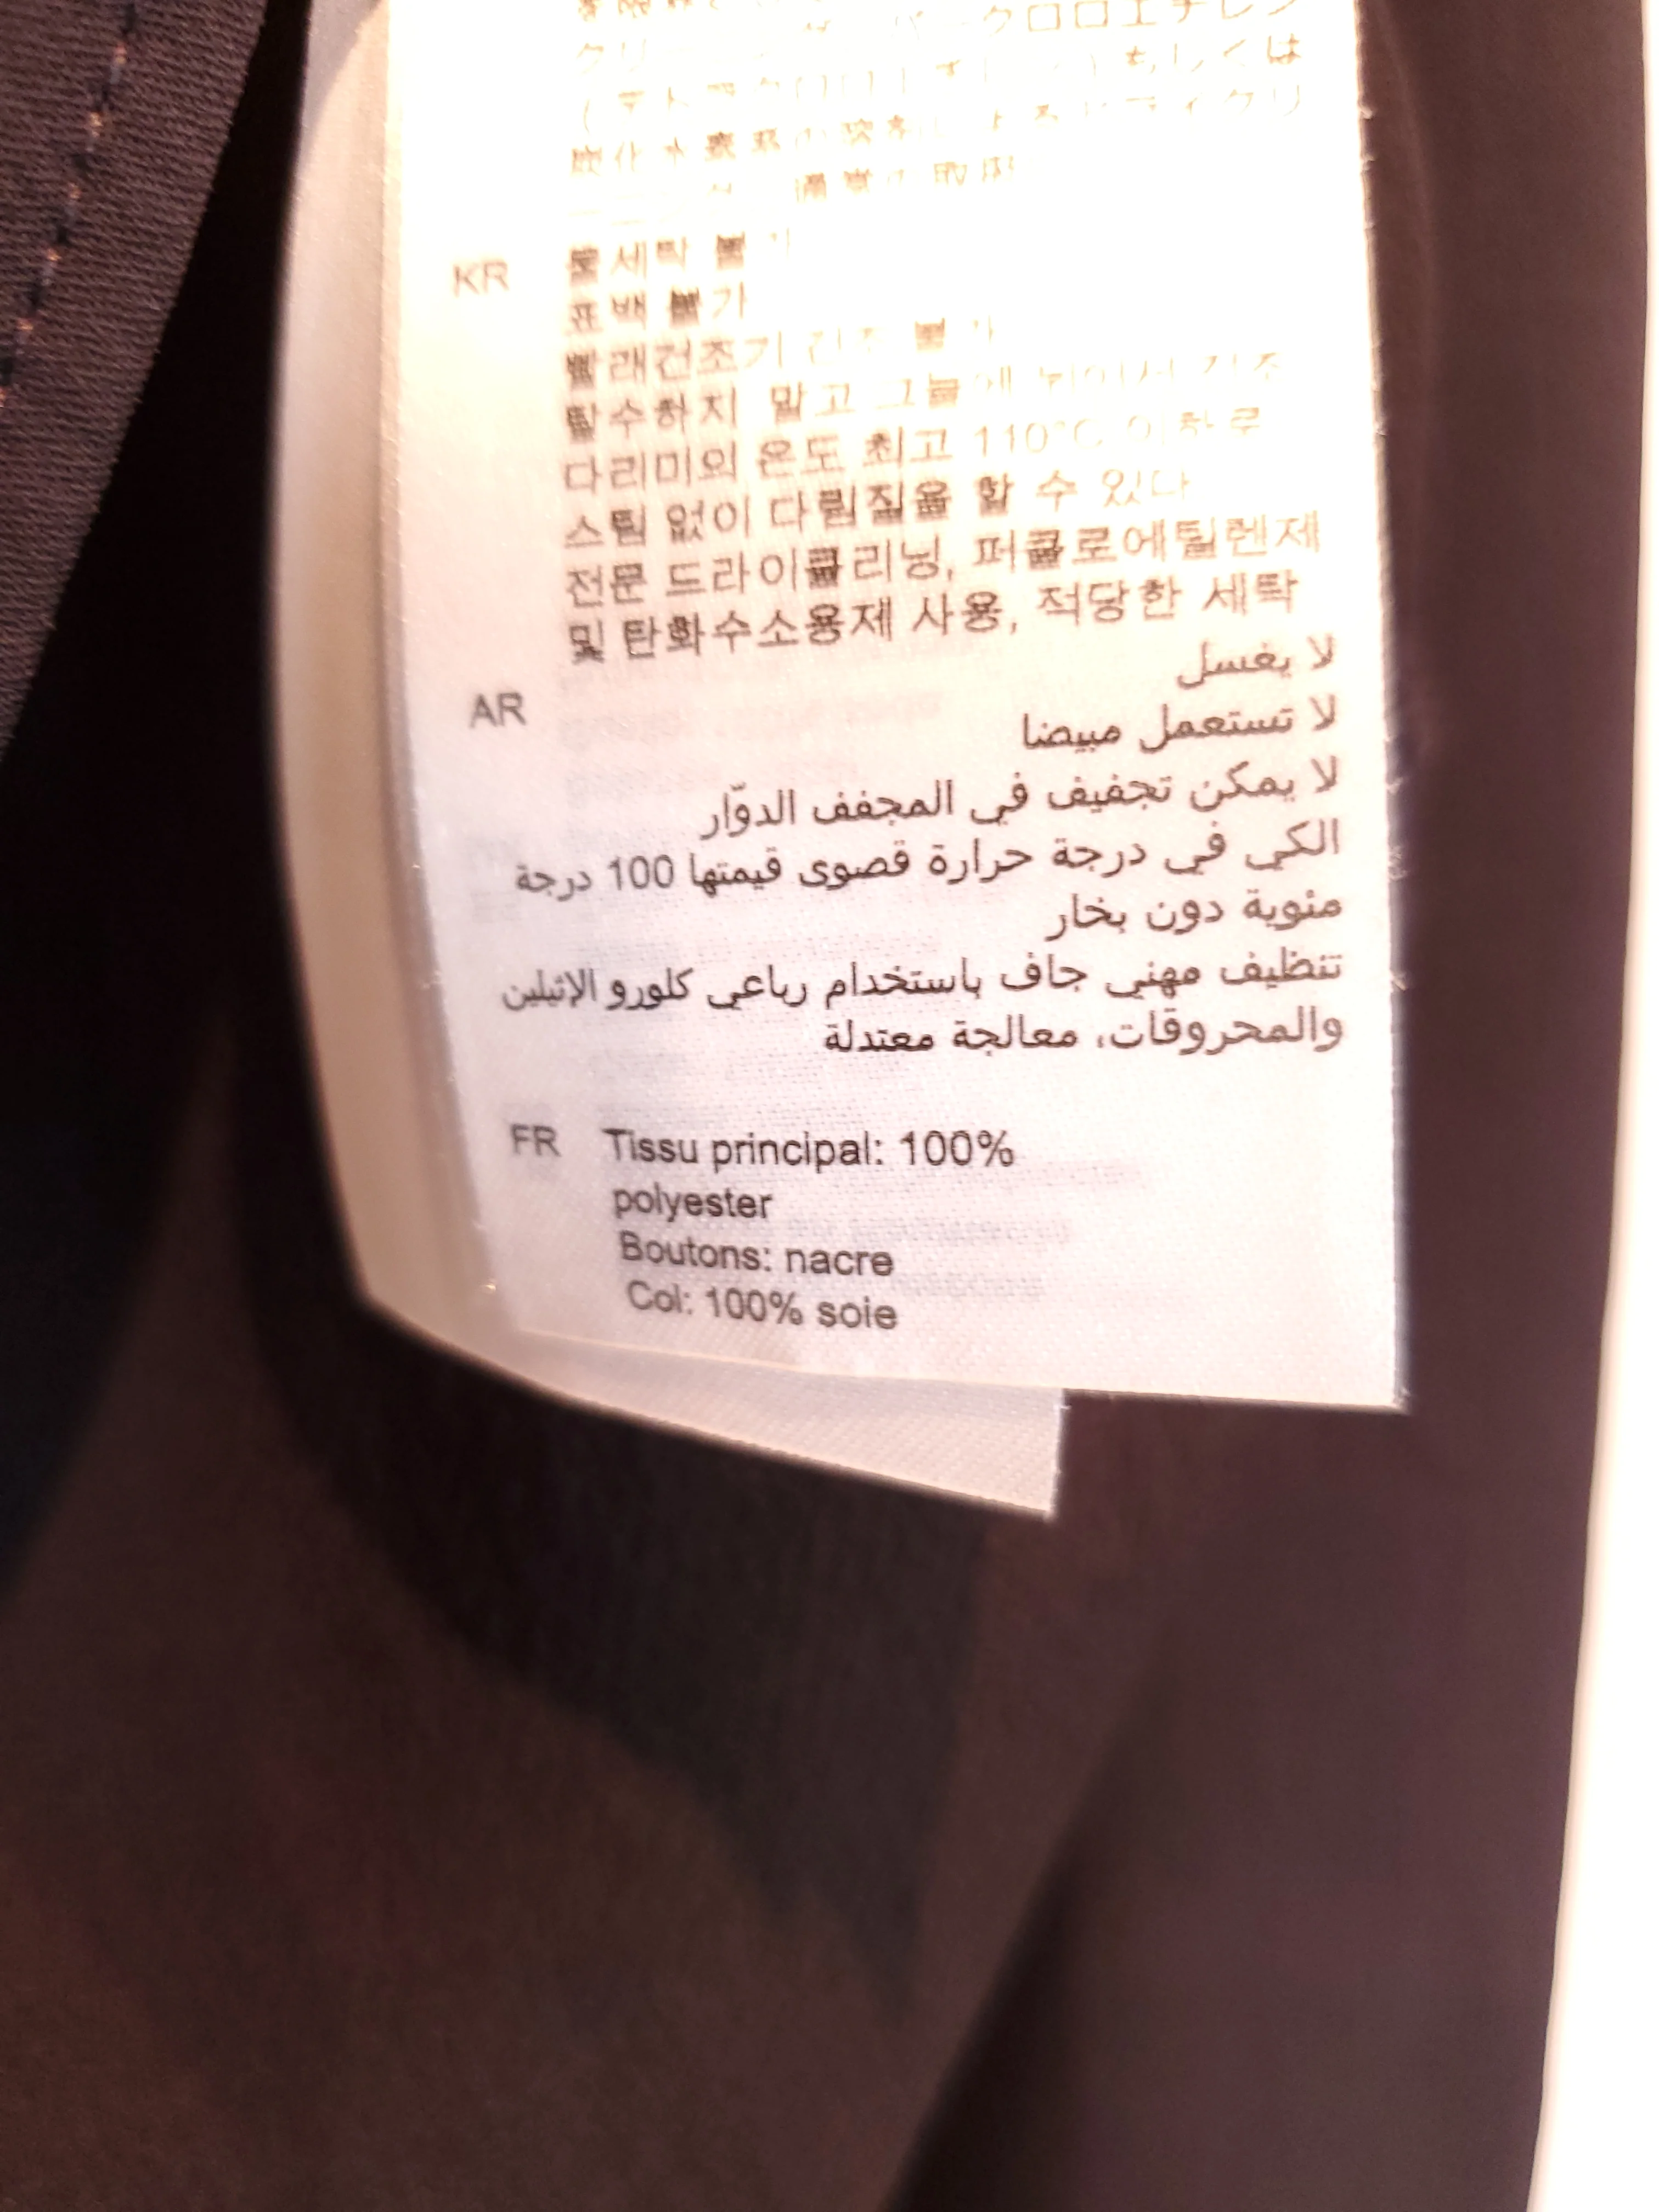 クロロエチレン
もしくは
KR 물세탁 불가
표백 불가
빨래건조기 건조 불가
탈수하지 말고 그늘에 뉘어서 건조
다리미의 온도 최고 110°C 이하로
스팀 없이 다림질을 할 수 있다
전문 드라이클리닝, 퍼클로에틸렌제
및 탄화수소용제 사용, 적당한 세탁
AR لا يغسل
لا تستعمل مبيضا
لا يمكن تجفيف في المجفف الدوّار
الكي في درجة حرارة قصوى قيمتها 100 درجة
مئوية دون بخار
تنظيف مهني جاف باستخدام رباعي كلورو الإثيلين
والمحروقات، معالجة معتدلة
FR Tissu principal: 100%
polyester
Boutons: nacre
Col: 100% soie